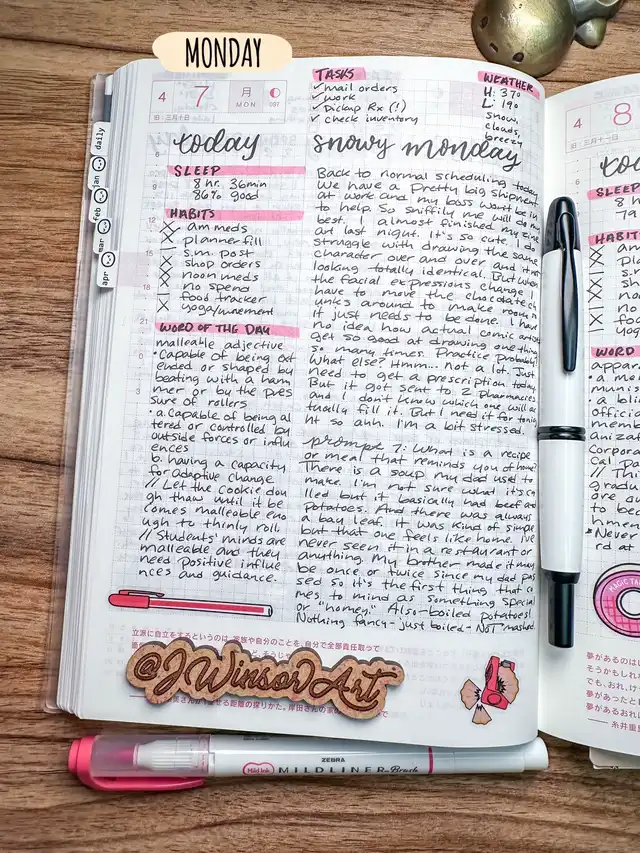 MONDAY
4 7 月 MON 097
旧:三月十日
today
SLEEP
8 hr. 36min
86% good
HABITS
am meds
planner fill
s.m. post
shop orders
noon meds
no spend
food tracker
yoga/movement
WORD OF THE DAY
malleable adjective
• Capable of being ext
ended or shaped by
beating with a ham
mer or by the pres
sure of rollers
• a. Capable of being al
tered or controlled by
outside forces or influ
ences
b. having a capacity
for adaptive change
// Let the cookie dou
gh thaw until it be
comes malleable eno
ugh to thinly roll.
// Students' minds are
malleable and they
need positive influe
nces and guidance.
TASKS
✓ mail orders
✓ work
✓ Pickup Rx (!)
✓ check inventory
WEATHER
H: 37°
L: 19°
snow,
clouds,
breezy
snowy monday
Back to normal scheduling today.
We have a pretty big shipment
at work and my boss won't be in
to help. So sniffily me will do my
best. I almost finished my zine
art last night. It's so cute. I do
struggle with drawing the same
character over and over and it not
looking totally identical. But when
the facial expressions change I
have to move the chocolate ch
unks around to make room so
it just needs to be done. I have
no idea how actual comic artists
get so good at drawing one thing
so many times. Practice probably!
What else? Hmm... Not a lot. Just
need to get a prescription today.
But it got sent to 2 Pharmacies
and I don't know which one will ac
tually fill it. But I need it for tonig
ht so ahh. I'm a bit stressed.
prompt 7: What is a recipe
or meal that reminds you of home?
There is a soup my dad used to
make. I'm not sure what it's ca
lled but it basically had beef and
potatoes. And there was always
a bay leaf. It was kind of simple
but that one feels like home. I've
never seen it in a restaurant or
anything. My brother made it may
be once or twice since my dad pas
sed so it's the first thing that co
mes to mind as something special
or "homey." Also-boiled potatoes!
Nothing fancy-just boiled-NOT mashed.
立派に自立をするというのは、家族や自分のことを、自分で全部責任取って
@JWinsorArt
daily
jan
feb
mar
apr
4 8
旧:三月十一日
SLEEP
8 h
HABIT
WORD
MAGIC TA
ZEBRA
Mild Ink MILDLINER Brush